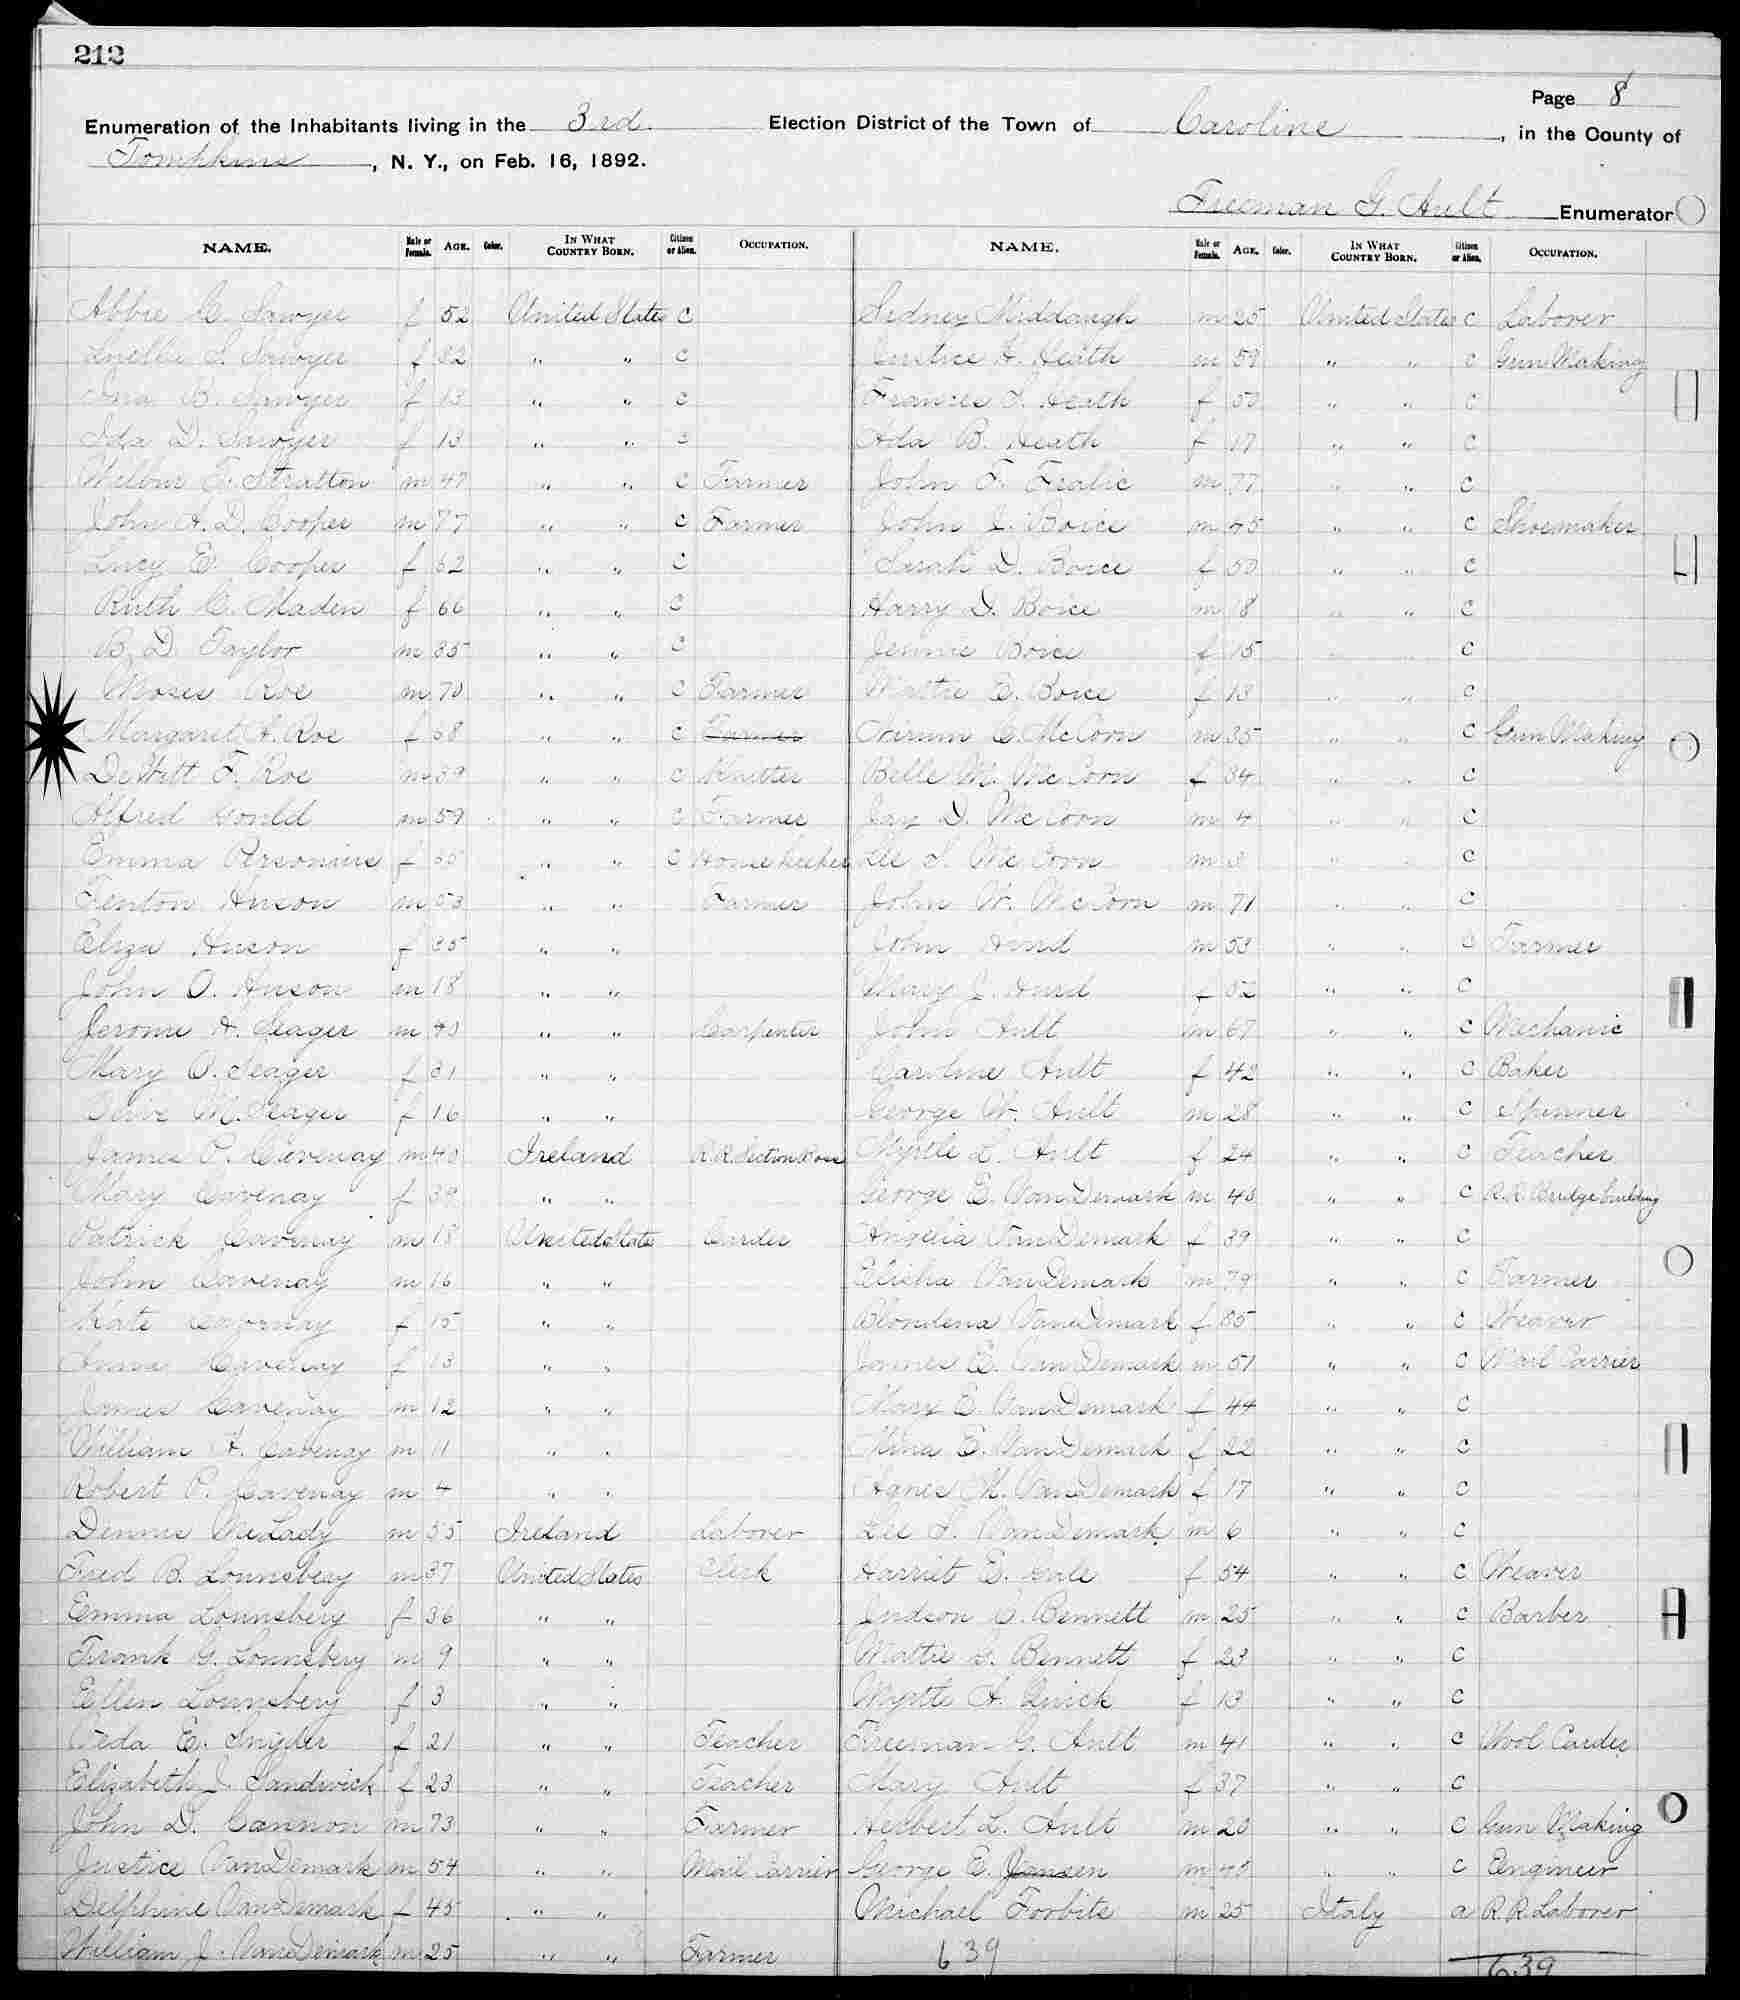 212
Page 8
Enumeration of the Inhabitants living in the 3rd. Election District of the Town of Caroline, in the County of
Tompkins, N. Y., on Feb. 16, 1892.
Freeman G. Ault Enumerator
NAME. Male or Female. AGE. Color. IN WHAT COUNTRY BORN. Citizen or Alien. OCCUPATION. NAME. Male or Female. AGE. Color. IN WHAT COUNTRY BORN. Citizen or Alien. OCCUPATION.
Abbie C. Sawyer f 52 United States C
Luella S. Sawyer f " " C
Ina B. Sawyer f 13 " " C
Ida D. Sawyer f 13 " " C
Wilbur F. Stratton m 47 " " C Farmer
John A. D. Cooper m 77 " " C Farmer
Lucy E. Cooper f 62 " " C
Ruth C. Maden f 66 " " C
B. D. Taylor m 35 " " C
Moses Roe m 70 " " C Farmer
Margaret A. Roe f 68 " " C Farmer
DeWitt F. Roe m 39 " " C Knitter
Alfred Gould m 59 " " C Farmer
Emma Personius f " " C House keeker
Fenton Huson m 53 " " Farmer
Eliza Huson f 35 " "
John O. Huson m 18 " "
Jerome A. Seager m 40 " " Carpenter
Mary O. Seager f 31 " "
Olive M. Seager f 16 " "
James P. Cavenay m 40 Ireland R.R. Section Boss
Mary Cavenay f 39 " "
Patrick Cavenay m 18 United States Carder
John Cavenay m 16 " "
Kate Cavenay f 15 " "
Anna Cavenay f 13 " "
James Cavenay m 12 " "
William H. Cavenay m 11 " "
Robert P. Cavenay m 4 " "
Dennis McLady m 55 Ireland Laborer
Fred B. Lounsbery m 37 United States Clerk
Emma Lounsbery f 36 " "
Frank G. Lounsbery m 9 " "
Ellen Lounsbery f 3 " "
Veda E. Snyder f 21 " " Teacher
Elizabeth J. Sandwick f 23 " " Teacher
John D. Cannon m 73 " " Farmer
Justice VanDemark m 54 " " Mail Carrier
Delphine VanDemark f 45 " "
William J. VanDemark m 25 " " Farmer
Sidney Middaugh m 25 United States C Laborer
Justice H. Heath m 59 " " C Gun Making
Frances S. Heath f 50 " " C
Ada B. Heath f 17 " " C
John F. Fralic m 77 " " C
John J. Boice m 45 " " C Shoemaker
Sarah D. Boice f 50 " " C
Harry D. Boice m 18 " " C
Jennie Boice f 15 " " C
Mattie E. Boice f 13 " " C
Hirum C. McCorn m 35 " " C Gun Making
Belle M. McCorn f 34 " " C
Jay D. McCorn m 4 " " C
Lee S. McCorn m 3 " " C
John W. McCorn m 71 " " C
John Hurd m 53 " " C Farmer
Mary J. Hurd f 52 " " C
John Ault m 67 " " C Mechanic
Caroline Ault f 42 " " C Baker
George W. Ault m 28 " " C Spinner
Myrtle L. Ault f 24 " " C Teacher
George E. VanDemark m 43 " " C R.R. Bridge building
Angelia VanDemark f 39 " " C
Elisha VanDemark m 79 " " C Farmer
Blondena VanDemark f 35 " " C Weaver
James E. VanDemark m 51 " " C Mail Carrier
Mary E. VanDemark f 44 " " C
Nina E. VanDemark f 22 " " C
Agnes M. VanDemark f 17 " " C
Lee S. VanDemark m 6 " " C
Harriet E. Gale f 54 " " C Weaver
Judson C. Bennett m 25 " " C Barber
Mattie G. Bennett f 23 " " C
Myrtle A. Quick f 13 " " C
Freeman G. Ault m 41 " " C Wool Carder
Mary Ault f 37 " " C
Herbert L. Ault m 20 " " C Gun Making
George E. Jansen m 45 " " C Engineer
Michael Forbits m 25 Italy a R.R. Laborer
639 639